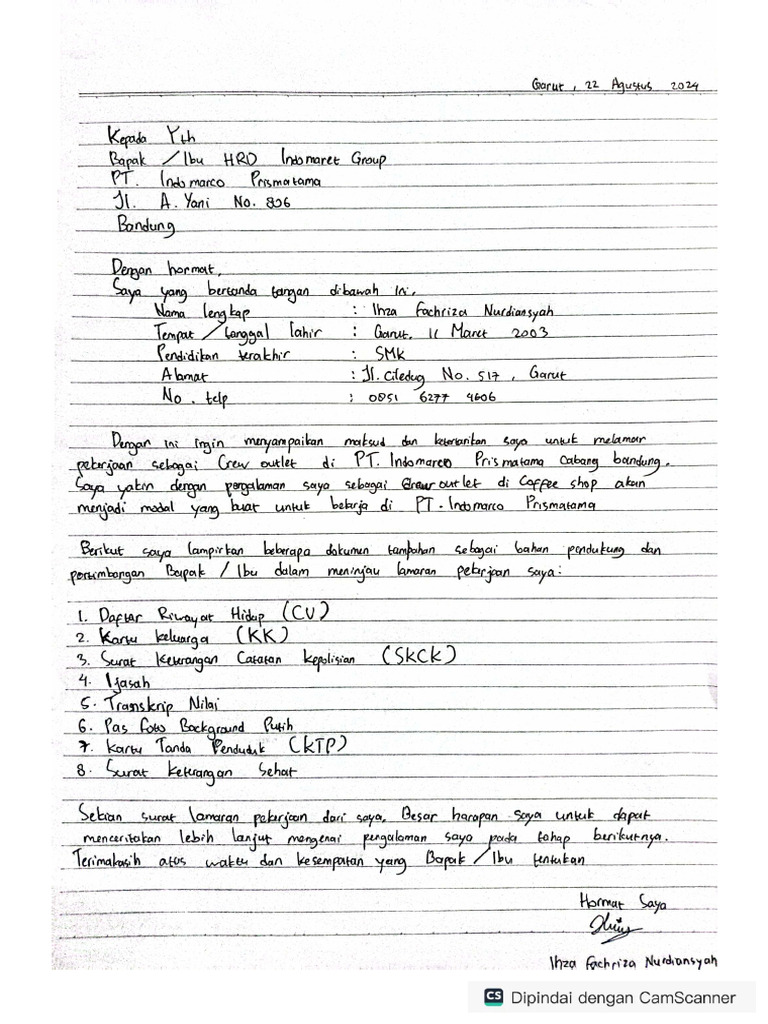 Garut, 22 Agustus 2024
Kepada Yth
Bapak / Ibu HRD Indomaret Group
PT. Indomarco Prismatama
Jl. A. Yani No. 806
Bandung
Dengan hormat,
Saya yang bertanda tangan dibawah ini.
Nama lengkap : Ihza Fachriza Nurdiansyah
Tempat / tanggal lahir : Garut, 11 Maret 2003
Pendidikan terakhir : SMK
Alamat : Jl. Ciledug No. 517, Garut
No. telp : 0851 6277 4606
Dengan ini ingin menyampaikan maksud dan ketertarikan saya untuk melamar
pekerjaan sebagai Crew outlet di PT. Indomarco Prismatama Cabang bandung.
Saya yakin dengan pengalaman saya sebagai Crew outlet di Coffee shop akan
menjadi modal yang kuat untuk bekerja di PT. Indomarco Prismatama
Berikut saya lampirkan beberapa dokumen tambahan sebagai bahan pendukung dan
pertimbangan Bapak / Ibu dalam meninjau lamaran pekerjaan saya:
1. Daftar Riwayat Hidup (CV)
2. Kartu Keluarga (KK)
3. Surat Keterangan Catatan Kepolisian (SKCK)
4. Ijasah
5. Transkrip Nilai
6. Pas Foto Background Putih
7. Kartu Tanda Penduduk (KTP)
8. Surat Keterangan Sehat
Sekian surat lamaran pekerjaan dari saya. Besar harapan saya untuk dapat
menceritakan lebih lanjut mengenai pengalaman saya pada tahap berikutnya.
Terimakasih atas waktu dan kesempatan yang Bapak / Ibu tentukan
Hormat Saya
Ihza Fachriza Nurdiansyah
CS Dipindai dengan CamScanner